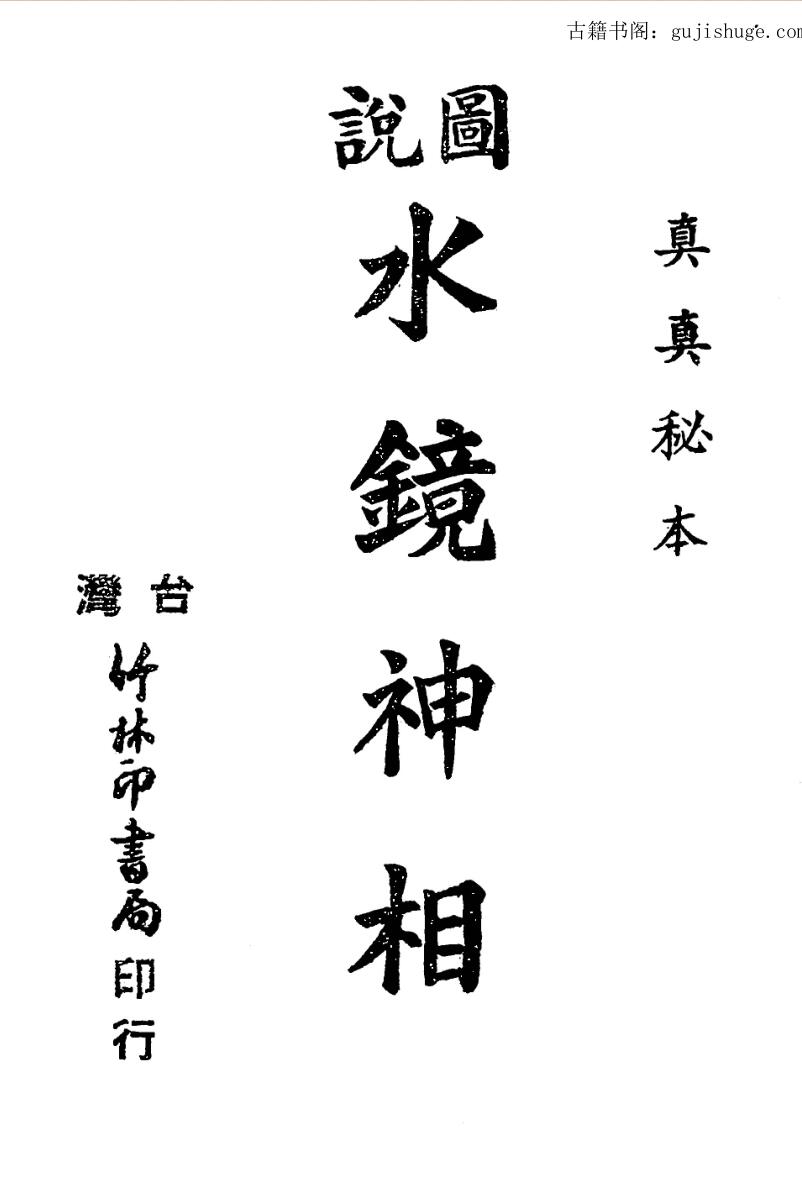 古籍书阁：gujishuge.com
真真秘本
圖說
水鏡神相
台灣
竹林印書局印行